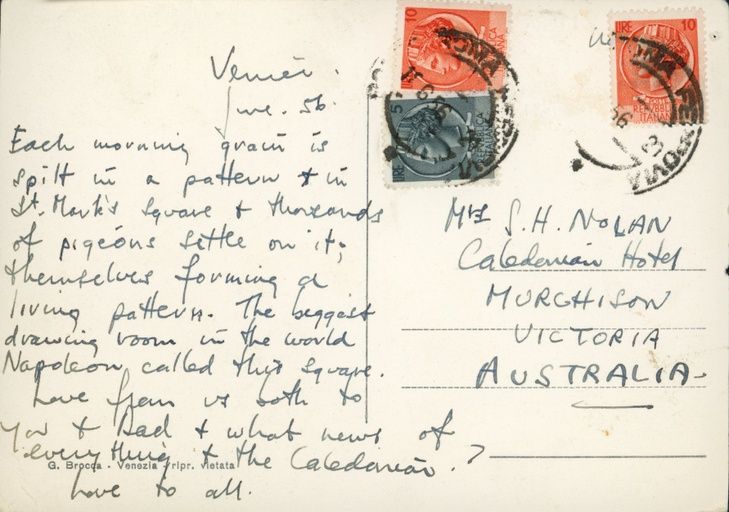 Venice.
June. 56.
Each morning grain is
spilt in a pattern & in
St. Mark's Square & thousands
of pigeons settle on it,
themselves forming a
living pattern. The biggest
drawing room in the world
Napoleon called this square.
Love from us both to
you & Dad & what news of
everything & the Caledonian?
Love to all.
G. Brocca - Venezia - ripr. vietata
LIRE 10
REPUBBLICA ITALIANA
LIRE 5
ROMA
LIRE 10
REPUBBLICA
ITALIANA
ROMA
Mrs S.H. NOLAN
Caledonian Hotel
MURCHISON
VICTORIA
AUSTRALIA